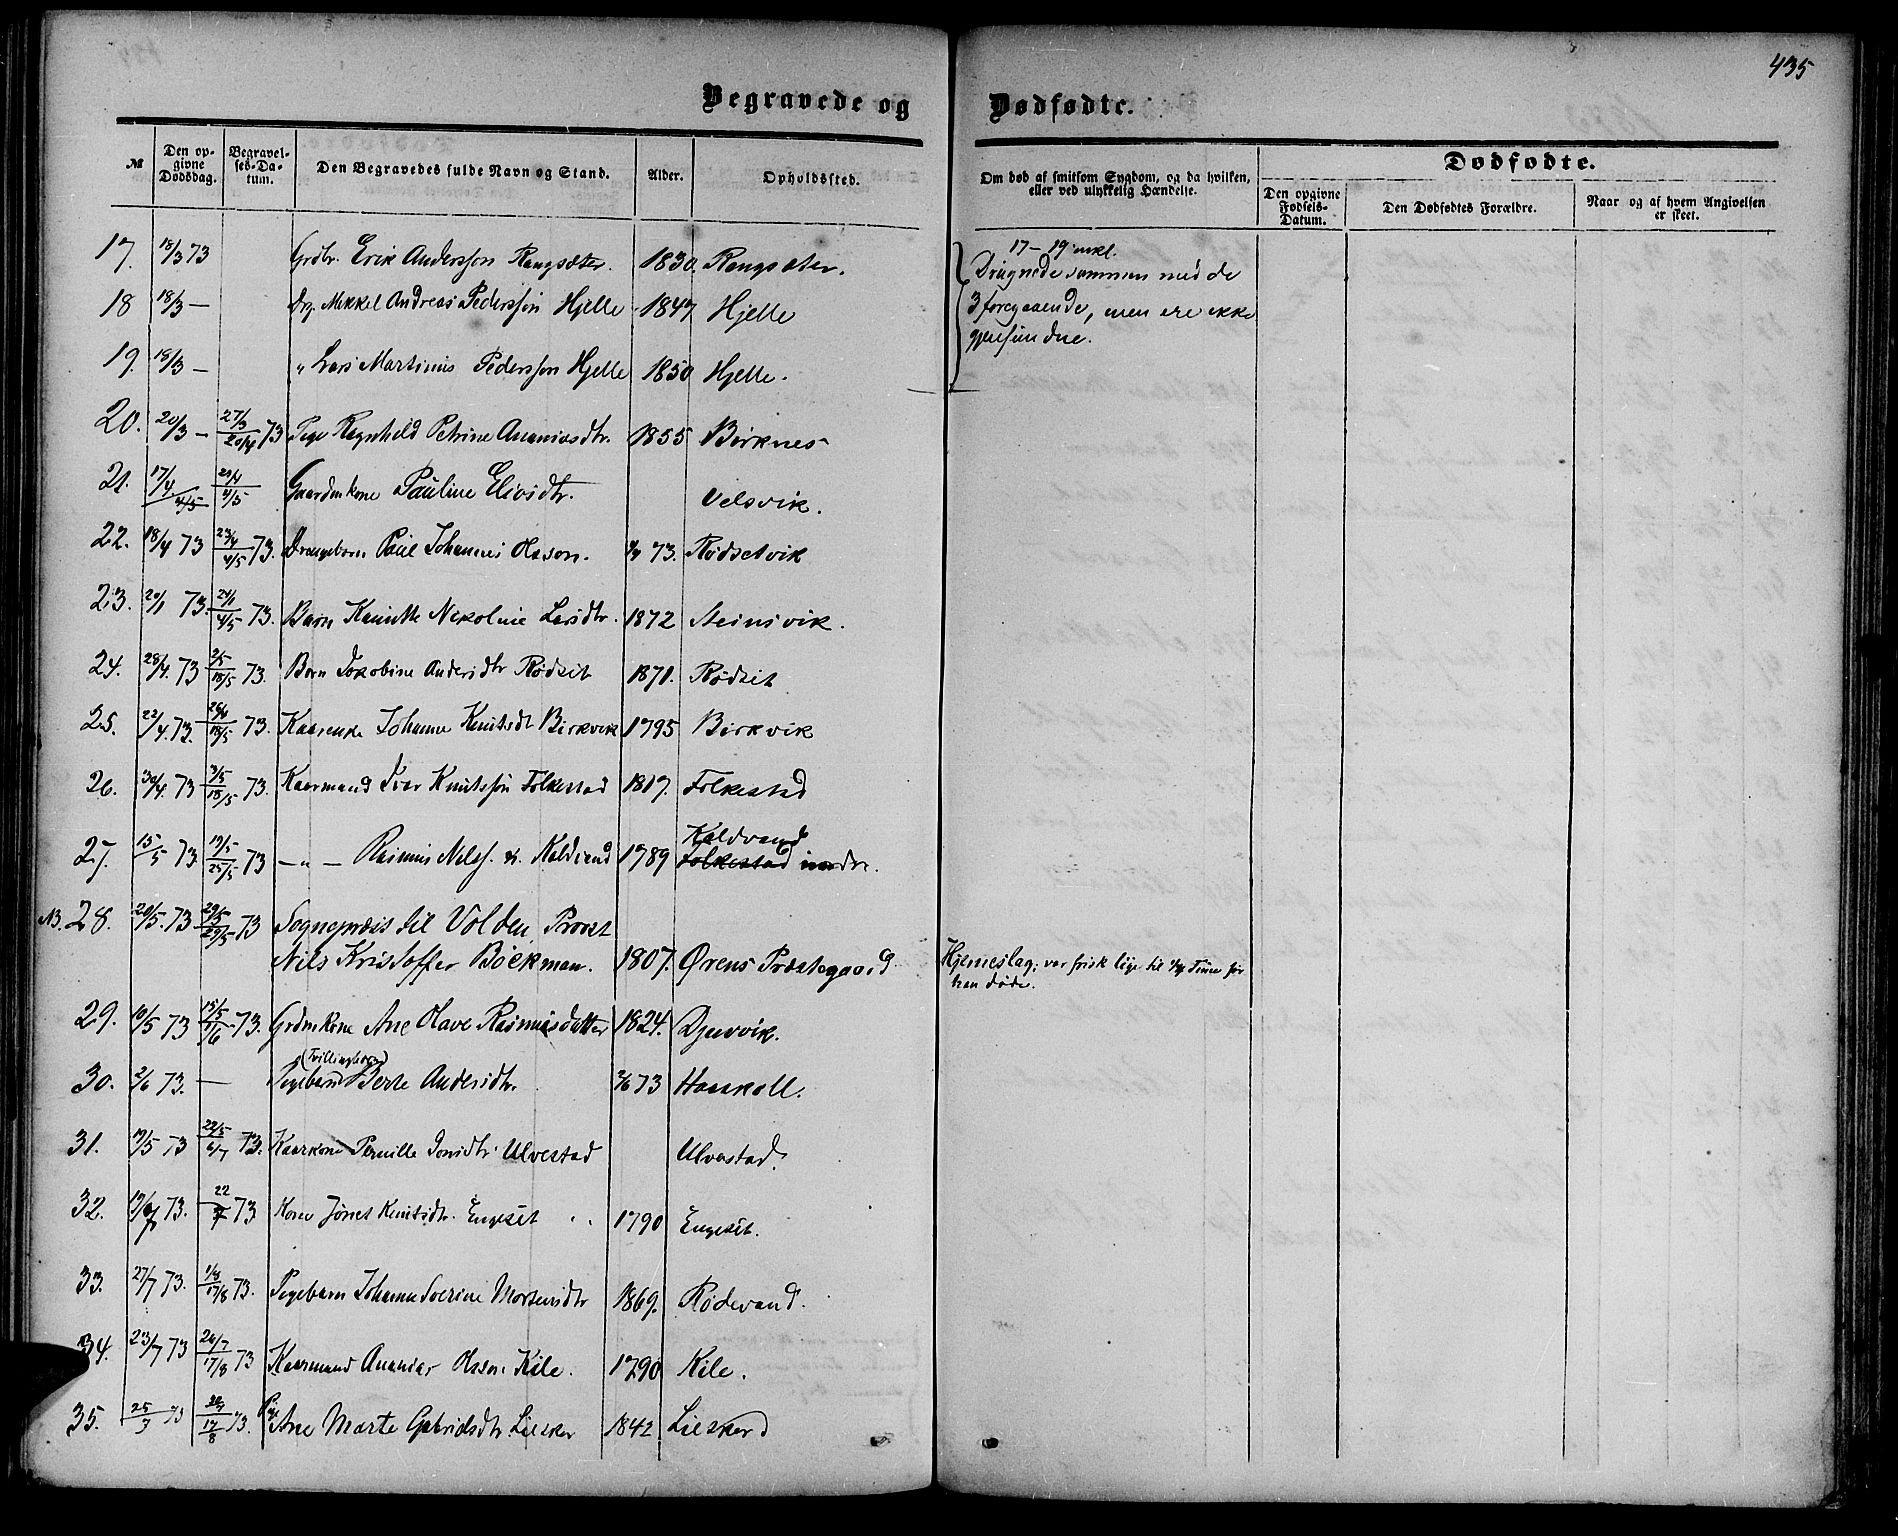 435
Begravede og Dødfødte.
№ Den opgivne Dødsdag. Begravelses-Datum. Den Begravedes fulde Navn og Stand. Alder. Opholdssted. Om død af smitsom Sygdom, og da hvilken, eller ved ulykkelig Hændelse. Dødfødte.
Den opgivne Fødsels-Datum. Den Dødfødtes Forældre. Naar og af hvem Angivelsen er skeet.
17. 18/3 73 Grdbr. Erik Anderssøn Rangsæter. 1830. Rangsæter. 17–19 inkl. Druknede sammen med de
18 18/3 — Drg. Mikkel Andreas Pederssøn Hjelle 1847 Hjelle 3 foregaaende, men ere ikke
19. 18/3 — " Lars Martinus Pederssøn Hjelle 1850 Hjelle. gjenfundne.
20. 20/3 — 27/3 20/4 73 Pige Ragnhild Petrine Ananiasdtr. 1855 Birknes
21. 17/4 4/5 Gaardmkone Pauline Eliasdtr. Velsvik.
22. 18/4 73 23/4 4/5 73. Drengebarn Paul Johannes Olsson. 73. Rødsetvik
23. 73. 4/5 73. Barn Nikoline Larsdtr. 1872 Steinsvik.
24. 28/4. 73 2/5 18/5 73. Barn Jakobine Andersdtr Rødset 1871. Rødset
25. 22/4. 73. 26/4 18/5 73. Kaarenke Johanne Knutsdt Birkvik 1795 Birkvik
26. 30/4. 73 3/5 18/5 73. Kaarmand Ivar Knutssøn Folkestad 1817. Folkestad
27. 15/5 73 19/5 25/5 73 — " — Rasmus Nilss. Kaldvand 1789 Kaldvand
Folkestad indre.
NB. 28. 20/5. 73 29/5 29/5 73 Sognepræst til Volden, Provst
Nils Kristoffer Böckman. 1807. Ørens Præstegaard Hjerneslag; var frisk lige til 1/4 Time før
han døde.
29. 10/5 73 15/5 1/6 73. Grdmkone Ane Olave Rasmusdatter 1824. Djupvik.
(Tvillingbarn)
30. 2/6 73. — Pigebarn Berte Andersdtr. 2/6 73 Haaskoll.
31. 19/5 73 22/5 6/7 73. Kaarkone Pernille Jonsdtr. Ulvestad Ulvestad.
32. 73. 22 7 73 Kone Jønet Knutsdtr. Engeset 1790 Engeset.
33. 27/7 73. 1/8 17/8 73. Pigebarn Johanne Severine Mortensdtr 1869. Rødevand.
34. 23/7 73 26/7 17/8 73 Kaarmand Ananias Olsson Kile. 1790 Kile.
35. 25/7 73 17/8 73. Pige Ane Marte Gabrielsdtr. Liesker 1842 Liesker